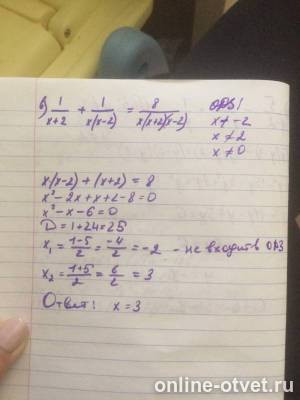 б) 1/(x+2) + 1/(x(x-2)) = 8/(x(x+2)(x-2)) ОРЗ!
x ≠ -2
x ≠ 2
x ≠ 0
x(x-2) + (x+2) = 8
x² - 2x + x + 2 - 8 = 0
x² - x - 6 = 0
D = 1 + 24 = 25
x₁ = (1-5)/2 = -4/2 = -2 - не входить ОРЗ
x₂ = (1+5)/2 = 6/2 = 3
Ответ: x = 3
online-otvet.ru